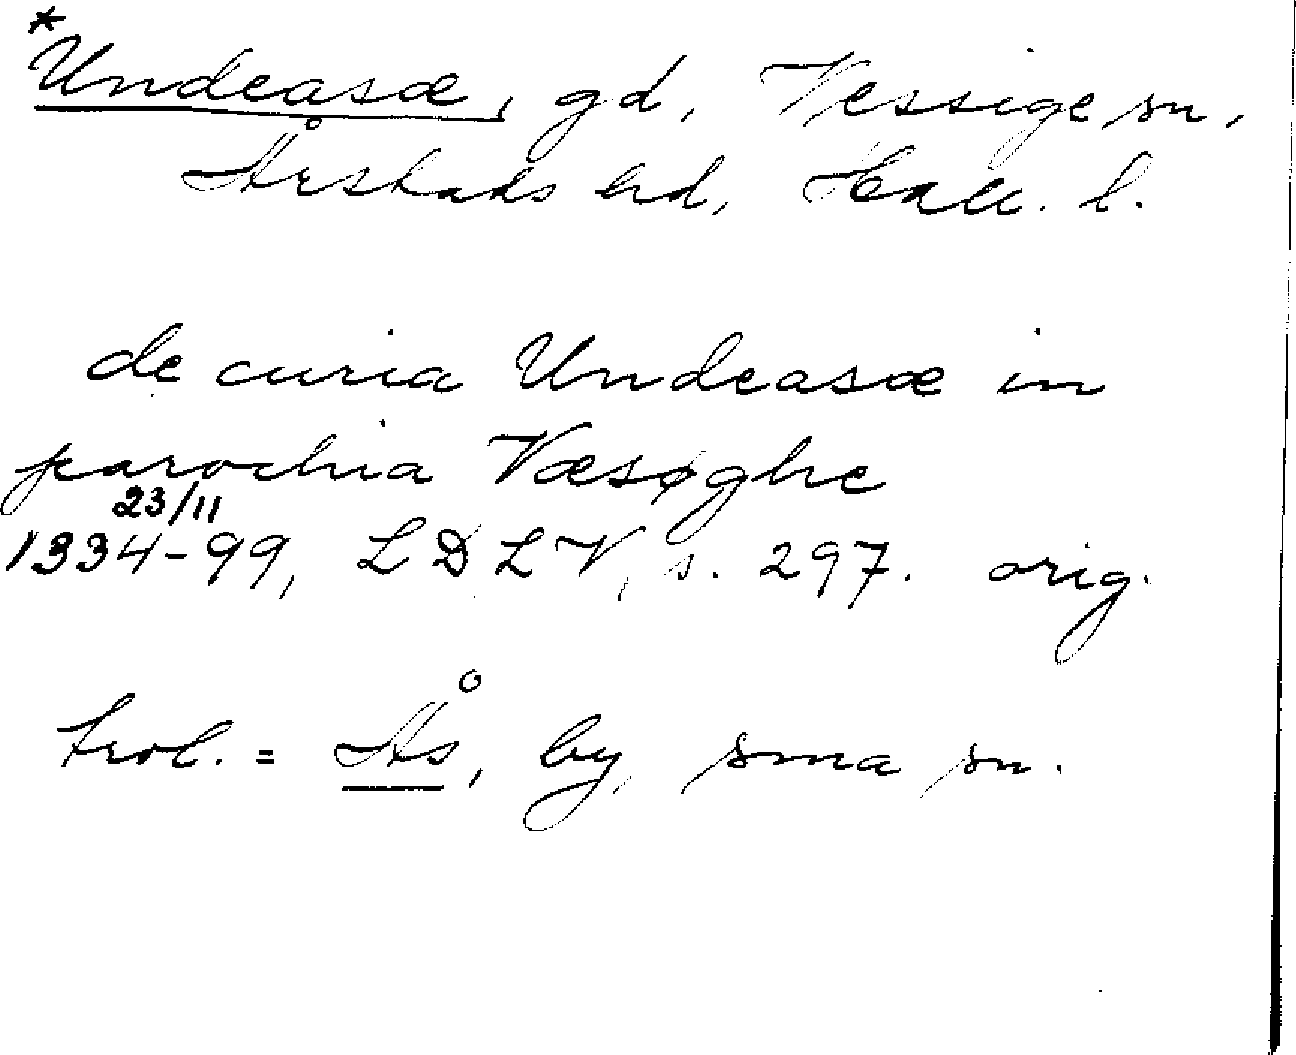 *Undeasæ, gd, Vessige sn,
Årstads hd, Hall. l.
de curia Undeasæ in
parochia Væsøghe
23/11
1334-99, LDLV, s. 297. orig.
trol. = Ås, by, sma sn.